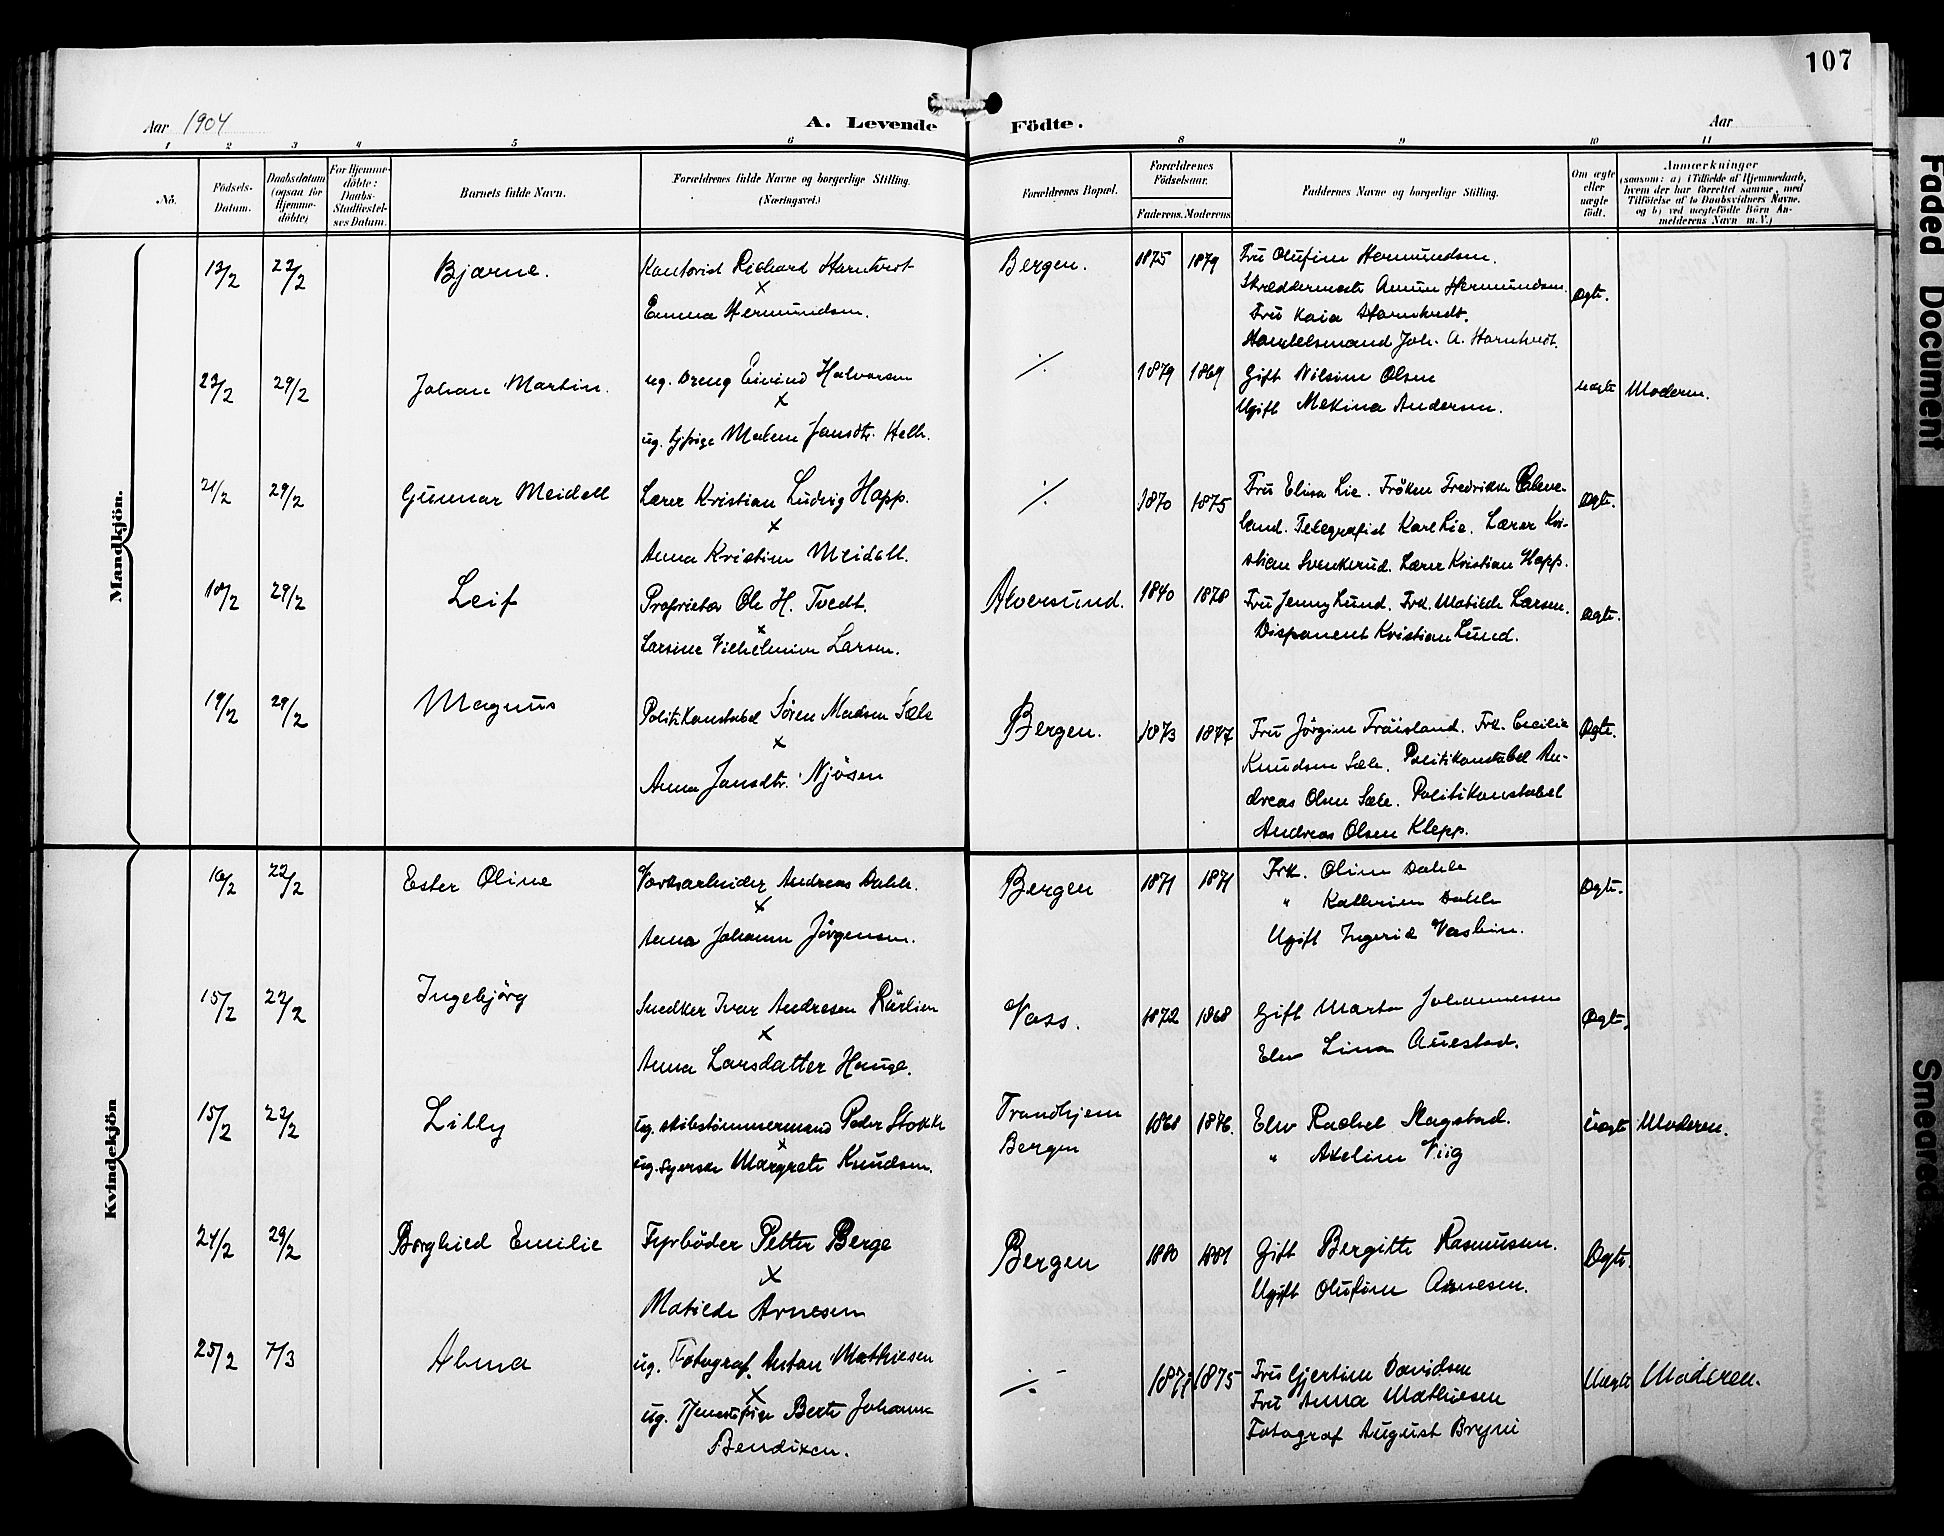 107
Aar 1904
A. Levende Födte.
Aar
1 2 3 4 5 6 8 9 10 11
No.
Födsels-Datum.
Daabsdatum (ogsaa for Hjemme-döbte)
For Hjemme-döbte: Daabs-Stadfæstel-ses Datum.
Barnets fulde Navn.
Forældrenes fulde Navne og borgerlige Stilling. (Næringsvei.)
Forældrenes Bopæl.
Forældrenes Födselsaar.
Faderens. Moderens.
Faddernes Navne og borgerlige Stilling.
Om ægte eller uægte födt.
Anmærkninger
(saasom: a) i Tilfælde af Hjemmedaab, hvem der har forrettet samme, med Tilföielse af to Daabsvidners Navne. og b) ved uægtefödte Börn An-melderens Navn m. V.)
Mandkjön.
13/2 22/2 Bjarne. Kontorist Richard Harnhvedt
x
Emma Hermundsen.
Bergen. 1875 1879 Fru Olufine Hermundsen.
Skræddermester Hermundsen.
Fru Kaia Harnhvedt.
Handelsmand Joh. A. Harnhvedt.
Ægte.
23/2 29/2 Johan Martin. ug. Dreng Eivind Halvorsen
x
ug. Malene Jansdtr. Helle.
./. 1879 1869 Gift Nilsine Olsen
Ugift Mekina Andersen.
uægte Moderen.
21/2 29/2 Gunnar Meidell Lærer Kristian Ludvig Hopp.
x
Anna Kristine Meidell.
./. 1870 1875 Fru Elisa Lie. Fröken Fredrikke Cleve-
land. Telegrafist Karl Lie. Lærer Kri-
stian Svenkerud. Lærer Kristian Hopp.
Ægte.
10/2 29/2 Leif Proprietær Ole H. Tvedt.
x
Larsine Vilhelmine Larsen.
Alversund. 1840 1878 Fru Jenny Lund. Frk. Matilde Larsen.
Disponent Kristian Lund.
Ægte.
19/2 29/2 Magnus Politikonstabel Sören Madsen Sæle
x
Anna Jansdtr. Njösen
Bergen. 1873 1877 Fru Jörgine Fröisland. Frk. Cecilie
Knudsen Sæle. Politikonstabel An-
dreas Olsen Sæle. Politikonstabel
Andreas Olsen Klepp.
Ægte.
Kvindekjön
16/2 22/2 Ester Oline Verksarbeider Andreas Dahle.
x
Anna Johanne Jörgensen.
Bergen 1871 1871 Frk. Oline Dahle
" Kathrine Dahle
Ugift Ingerid
Ægte.
15/2 22/2 Ingebjörg Snedker Ivar Andresen
x
Anna Larsdatter Hauge.
Voss. 1872 1868 Gift Marta Johannessen
Elev Lina Auestad.
Ægte.
15/2 22/2 Lilly ug. skibstömmermand Peder Stokke
x
ug. syerske Margrete Knudsen.
Trondhjem
Bergen
1868 1876. Elev Rachel Skagstad.
" Axeline Viig
Uægte Moderen.
24/2 29/2 Borghild Emilie Fyrböder Petter Berge
x
Matilde Arnesen
Bergen 1880 1881 Gift Bergitte Rasmussen.
Ugift Olufine Arnesen.
Ægte.
25/2 7/3 Alma ug. Fotograf. Anton Mathiesen
x
ug. Tjenestepige Berte Johanne
Bendixen.
./. 1877 1875 Fru Gjertine Davidsen
Fru Anna Mathiesen
Fotograf August Bryni
Uægte Moderen.
Faded Document
Smeared